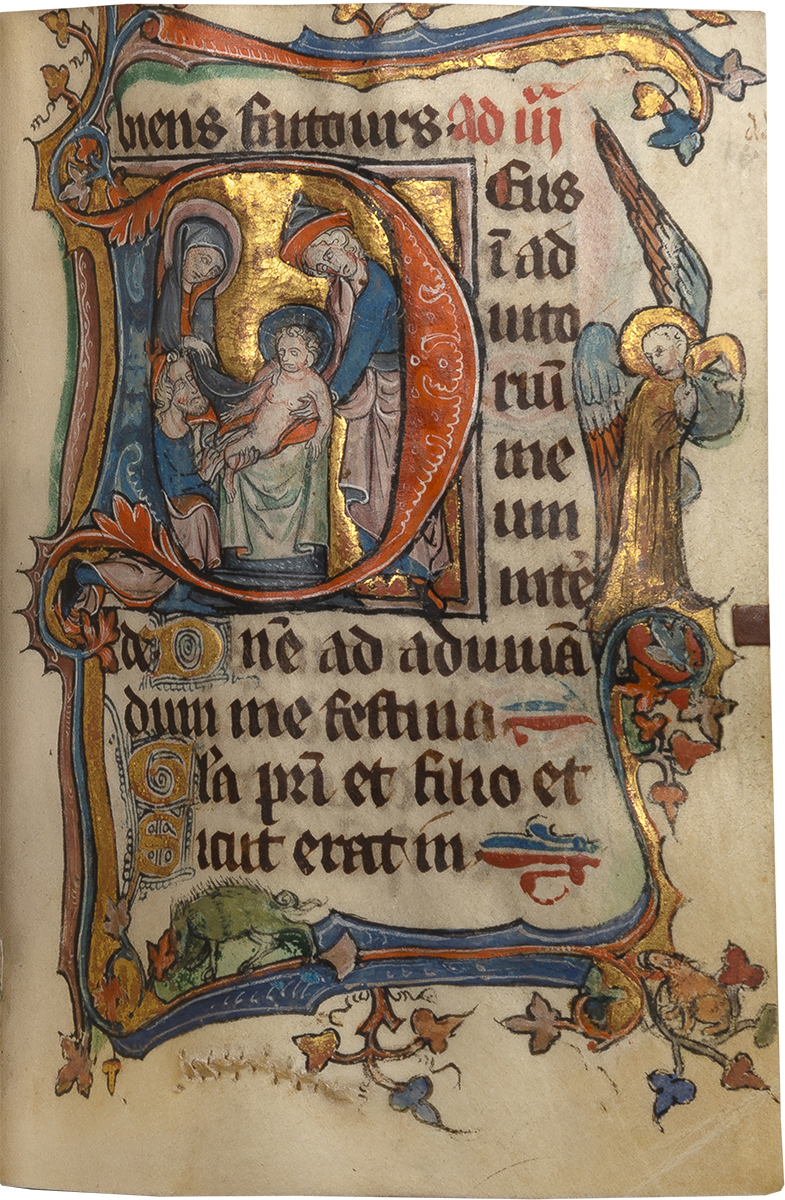 biens faitours. ad iij
DEus
ī ad
iuto
riū
me
um
intē
de Dñe ad adiuuā
dum me festina
Gľa pr̄i et filio et
Sicut erat in